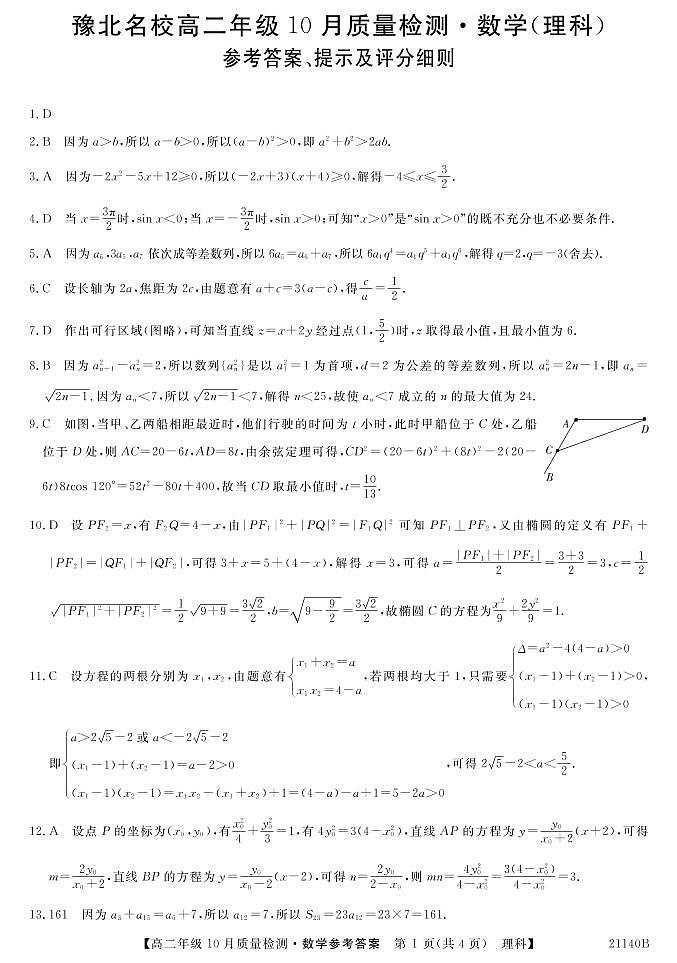 豫北名校高二年级 10 月质量检测·数学(理科)
参考答案、提示及评分细则
1. D
2. B 因为 a>b,所以 a-b>0,所以(a-b)²>0,即 a²+b²>2ab.
3. A 因为-2x²-5x+12≥0,所以(-2x+3)(x+4)≥0,解得-4≤x≤3/2.
4. D 当 x=3π/2时,sin x<0;当 x=-3π/2时,sin x>0;可知“x>0”是“sin x>0”的既不充分也不必要条件.
5. A 因为 a₆,3a₅,a₇ 依次成等差数列,所以 6a₅=a₆+a₇,所以 6a₁q⁴=a₁q⁵+a₁q⁶,解得 q=2,q=-3(舍去).
6. C 设长轴为 2a,焦距为 2c,由题意有 a+c=3(a-c),得c/a=1/2.
7. D 作出可行区域(图略),可知当直线 z=x+2y 经过点(1,5/2)时,z 取得最小值,且最小值为 6.
8. B 因为 a²ₙ₊₁-a²ₙ=2,所以数列{a²ₙ}是以 a²₁=1 为首项,d=2 为公差的等差数列,所以 a²ₙ=2n-1,即 aₙ=
√(2n-1).因为 aₙ<7,所以 √(2n-1)<7,解得 n<25,故使 aₙ<7 成立的 n 的最大值为 24.
9. C 如图,当甲、乙两船相距最近时,他们行驶的时间为 t 小时,此时甲船位于 C 处,乙船
位于 D 处,则 AC=20-6t,AD=8t,由余弦定理可得,CD²=(20-6t)²+(8t)²-2(20-
6t)8tcos 120°=52t²-80t+400,故当 CD 取最小值时,t=10/13.
A
D
C
B
10. D 设 PF₂=x,有 F₂Q=4-x,由|PF₁|²+|PQ|²=|F₁Q|² 可知 PF₁⊥PF₂,又由椭圆的定义有 PF₁+
|PF₂|=|QF₁|+|QF₂|,可得 3+x=5+(4-x),解得 x=3,可得 a=(|PF₁|+|PF₂|)/2=(3+3)/2=3,c=1/2
√(|PF₁|²+|PF₂|²)=1/2√(9+9)=3√2/2,b=√(9-9/2)=3√2/2,故椭圆 C 的方程为x²/9+2y²/9=1.
11. C 设方程的两根分别为 x₁,x₂,由题意有{x₁+x₂=a x₁x₂=4-a,若两根均大于 1,只需要{Δ=a²-4(4-a)>0 (x₁-1)+(x₂-1)>0, (x₁-1)(x₂-1)>0
即{a>2√5-2 或 a<-2√5-2 (x₁-1)+(x₂-1)=a-2>0 (x₁-1)(x₂-1)=x₁x₂-(x₁+x₂)+1=(4-a)-a+1=5-2a>0,可得 2√5-2<a<5/2.
12. A 设点 P 的坐标为(x₀,y₀),有x₀²/4+y₀²/3=1,有 4y₀²=3(4-x₀²),直线 AP 的方程为 y=y₀/(x₀+2)(x+2),可得
m=2y₀/(x₀+2),直线 BP 的方程为 y=y₀/(x₀-2)(x-2),可得 n=2y₀/(2-x₀),则 mn=4y₀²/(4-x₀²)=3(4-x₀²)/(4-x₀²)=3.
13. 161 因为 a₅+a₁₅=a₈+7,所以 a₁₂=7,所以 S₂₃=23a₁₂=23×7=161.
【高二年级 10 月质量检测·数学参考答案 第 1 页(共 4 页) 理科】 21140B